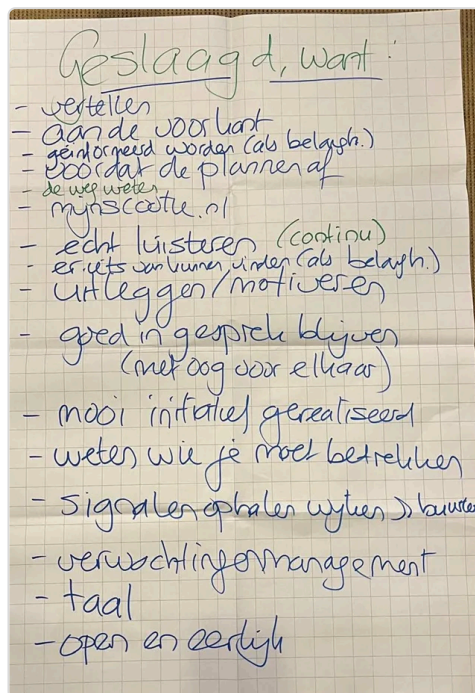 Geslaagd, want:
- vertellen
- aan de voorkant
- geïnformeerd worden (als belangh.)
- voordat de plannen af
- de weg weten
- mijnscootle.nl
- echt luisteren (continu)
- er iets van kunnen vinden (als belangh.)
- uitleggen/motiveren
- goed in gesprek blijven
(met oog voor elkaar)
- mooi initiatief gerealiseerd
- weten wie je moet betrekken
- signalen ophalen wijken >> buurten
- verwachtingenmanagement
- taal
- open en eerlijk